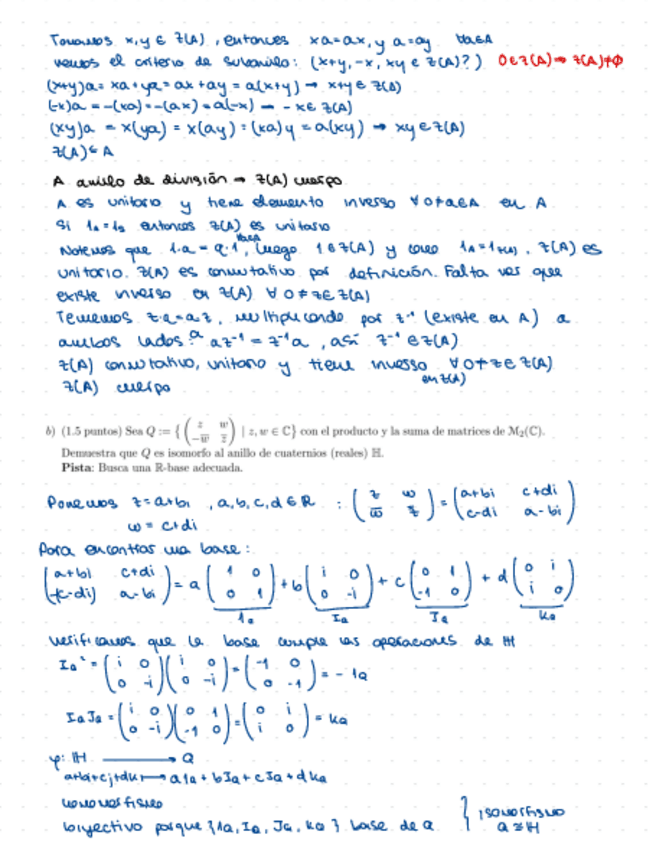 Tomamos x, y ∈ Z(A), entonces xa=ax, y a=ay ∀a∈A
vemos el criterio de subanillo: (x+y, -x, xy ∈ Z(A)?) 0∈Z(A) ⇒ Z(A)≠∅
(x+y)a = xa+ya = ax+ay = a(x+y) → x+y ∈ Z(A)
(-x)a = -(xa) = -(ax) = a(-x) → -x ∈ Z(A)
(xy)a = x(ya) = x(ay) = (xa)y = a(xy) → xy ∈ Z(A)
Z(A) ⊆ A
A anillo de división → Z(A) cuerpo
A es unitario y tiene elemento inverso ∀ 0≠a∈A en A
Si entonces Z(A) es unitario
Notemos que 1·a = a·1 ∀a∈A, luego 1∈Z(A) y como Z(A) es
unitario. Z(A) es conmutativo por definición. Falta ver que
existe inverso en Z(A) ∀ 0≠z∈Z(A)
Tenemos z·a=a·z, multiplicando por z⁻¹ (existe en A) a
ambos lados: az⁻¹ = z⁻¹a, así z⁻¹ ∈ Z(A)
Z(A) conmutativo, unitario y tiene inverso ∀ 0≠z∈Z(A)
en Z(A)
Z(A) cuerpo
b) (1.5 puntos) Sea Q := { ( z w / -w̅ z̅ ) | z, w ∈ ℂ} con el producto y la suma de matrices de M₂(ℂ).
Demuestra que Q es isomorfo al anillo de cuaternios (reales) ℍ.
Pista: Busca una ℝ-base adecuada.
Ponemos z = a+bi , a,b,c,d ∈ ℝ : ( z w / w̅ z̅ ) = ( a+bi c+di / c-di a-bi )
w = c+di
Para encontrar una base:
( a+bi c+di / -(c-di) a-bi ) = a ( 1 0 / 0 1 ) + b ( i 0 / 0 -i ) + c ( 0 1 / -1 0 ) + d ( 0 i / i 0 )
1Q IQ JQ KQ
Verificamos que la base cumple las operaciones de ℍ
IQ² = ( i 0 / 0 -i ) ( i 0 / 0 -i ) = ( -1 0 / 0 -1 ) = -1Q
IQ JQ = ( i 0 / 0 -i ) ( 0 1 / -1 0 ) = ( 0 i / i 0 ) = KQ
φ: ℍ → Q
a+bi+cj+dk ↦ a1Q + bIQ + cJQ + dKQ
homomorfismo
biyectivo porque {1Q, IQ, JQ, KQ} base de Q } isomorfismo
Q ≅ ℍ